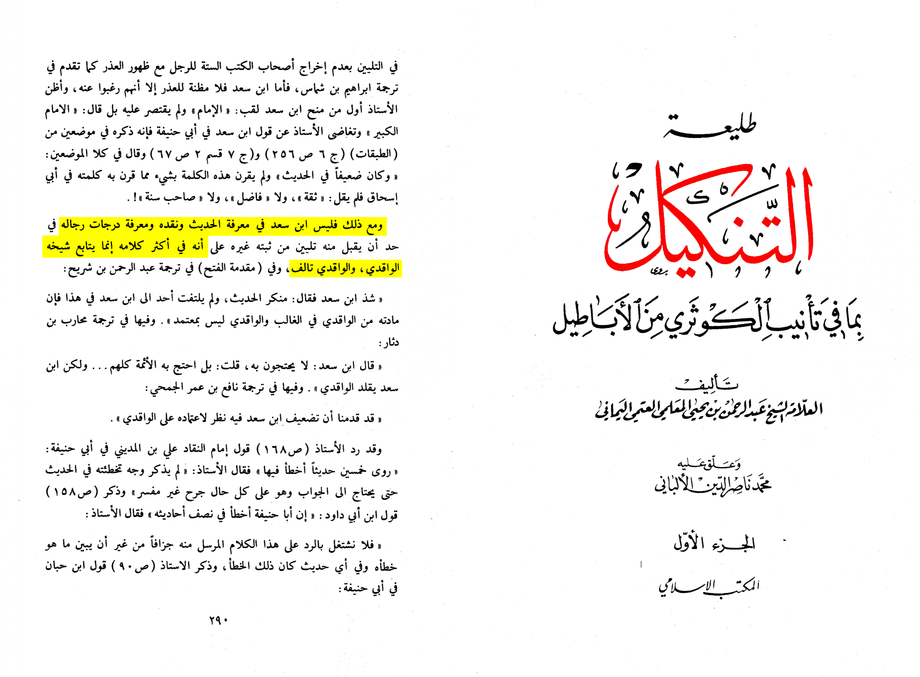 طليعة
التنكيل
بما في تأنيب الكوثري من الأباطيل
تأليف
العلامة الشيخ عبد الرحمن بن يحيى المعلمي العتمي اليماني
وعلق عليه
محمد ناصر الدين الألباني
الجزء الأول
المكتب الإسلامي
في التليين بعدم إخراج أصحاب الكتب الستة للرجل مع ظهور العذر كما تقدم في
ترجمة ابراهيم بن شماس، فأما ابن سعد فلا مظنة للعذر إلا أنهم رغبوا عنه، وأظن
الأستاذ أول من منح ابن سعد لقب: « الإمام » ولم يقتصر عليه بل قال: « الامام
الكبير » وتغاضى الأستاذ عن قول ابن سعد في أبي حنيفة فإنه ذكره في موضعين من
(الطبقات) (ج ٦ ص ٢٥٦) و(ج ٧ قسم ٢ ص ٦٧) وقال في كلا الموضعين:
« وكان ضعيفاً في الحديث » ولم يقرن هذه الكلمة بشيء مما قرن به كلمته في أبي
إسحاق فلم يقل: « ثقة »، ولا « فاضل »، ولا « صاحب سنة »!.
ومع ذلك فليس ابن سعد في معرفة الحديث ونقده ومعرفة درجات رجاله في
حد أن يقبل منه تليين من ثبته غيره على أنه في أكثر كلامه إنما يتابع شيخه
الواقدي، والواقدي تالف، وفي (مقدمة الفتح) في ترجمة عبد الرحمن بن شريح:
« شذ ابن سعد فقال: منكر الحديث، ولم يلتفت أحد الى ابن سعد في هذا فإن
مادته من الواقدي في الغالب والواقدي ليس بمعتمد ». وفيها في ترجمة محارب بن
دثار:
« قال ابن سعد: لا يحتجون به، قلت: بل احتج به الأئمة كلهم... ولكن ابن
سعد يقلد الواقدي ». وفيها في ترجمة نافع بن عمر الجمحي:
« قد قدمنا أن تضعيف ابن سعد فيه نظر لاعتماده على الواقدي ».
وقد رد الأستاذ (ص١٦٨) قول إمام النقاد علي بن المديني في أبي حنيفة:
« روى خمسين حديثاً أخطأ فيها » فقال الأستاذ: « لم يذكر وجه تخطئته في الحديث
حتى يحتاج الى الجواب وهو على كل حال جرح غير مفسر » وذكر (ص١٥٨)
قول ابن أبي داود: « إن أبا حنيفة أخطأ في نصف أحاديثه » فقال الأستاذ:
« فلا نشتغل بالرد على هذا الكلام المرسل منه جزافاً من غير أن يبين ما هو
خطأه وفي أي حديث كان ذلك الخطأ، وذكر الاستاذ (ص٩٠) قول ابن حبان
في أبي حنيفة:
٢٩٠